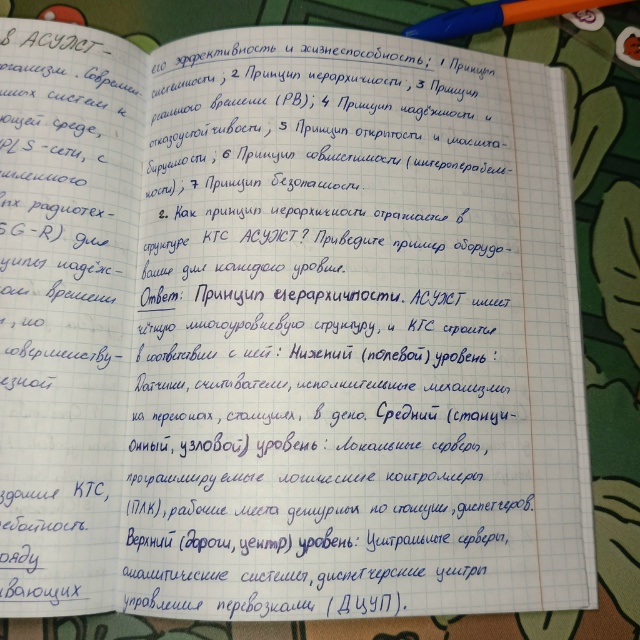 в АСУЖТ -
организм. Современ-
ющей среде,
PLS-сети, с
вых радиотех-
SG-R) для
ципы надёж-
ом времени
, но
совершенству-
езной
здание КТС,
ребность.
ряду
ивающих
его эффективность и жизнеспособность: 1 Принцип
системности; 2 Принцип иерархичности; 3 Принцип
реального времени (РВ); 4 Принцип надёжности и
отказоустойчивости; 5 Принцип открытости и масшта-
бируемости; 6 Принцип совместимости (интероперабель-
ности); 7 Принцип безопасности.
2. Как принцип иерархичности отражается в
структуре КТС АСУЖТ? Приведите пример оборудо-
вание для каждого уровня.
Ответ: Принцип иерархичности. АСУЖТ имеет
чёткую многоуровневую структуру, и КТС строится
в соответствии с ней: Нижний (полевой) уровень:
Датчики, считыватели, исполнительные механизмы
на перегонах, станциях, в депо. Средний (станци-
онный, узловой) уровень: Локальные серверы,
программируемые логические контроллеры
(ПЛК), рабочие места дежурных по станции, диспетчеров.
Верхний (дороги, центр) уровень: Центральные серверы,
аналитические системы, диспетчерские центры
управления перевозками (ДЦУП).